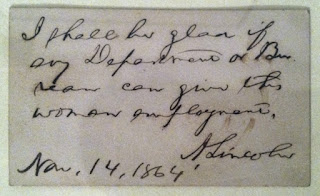 I shall be glad if
any Department or Bu-
reau can give this
woman employment.
A. Lincoln
Nov. 14, 1864.